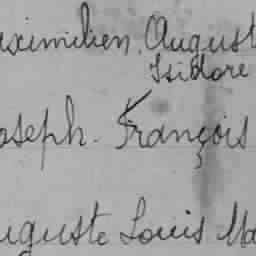 aximilien. August
Isidore
oseph. François
uguste Louis Ma